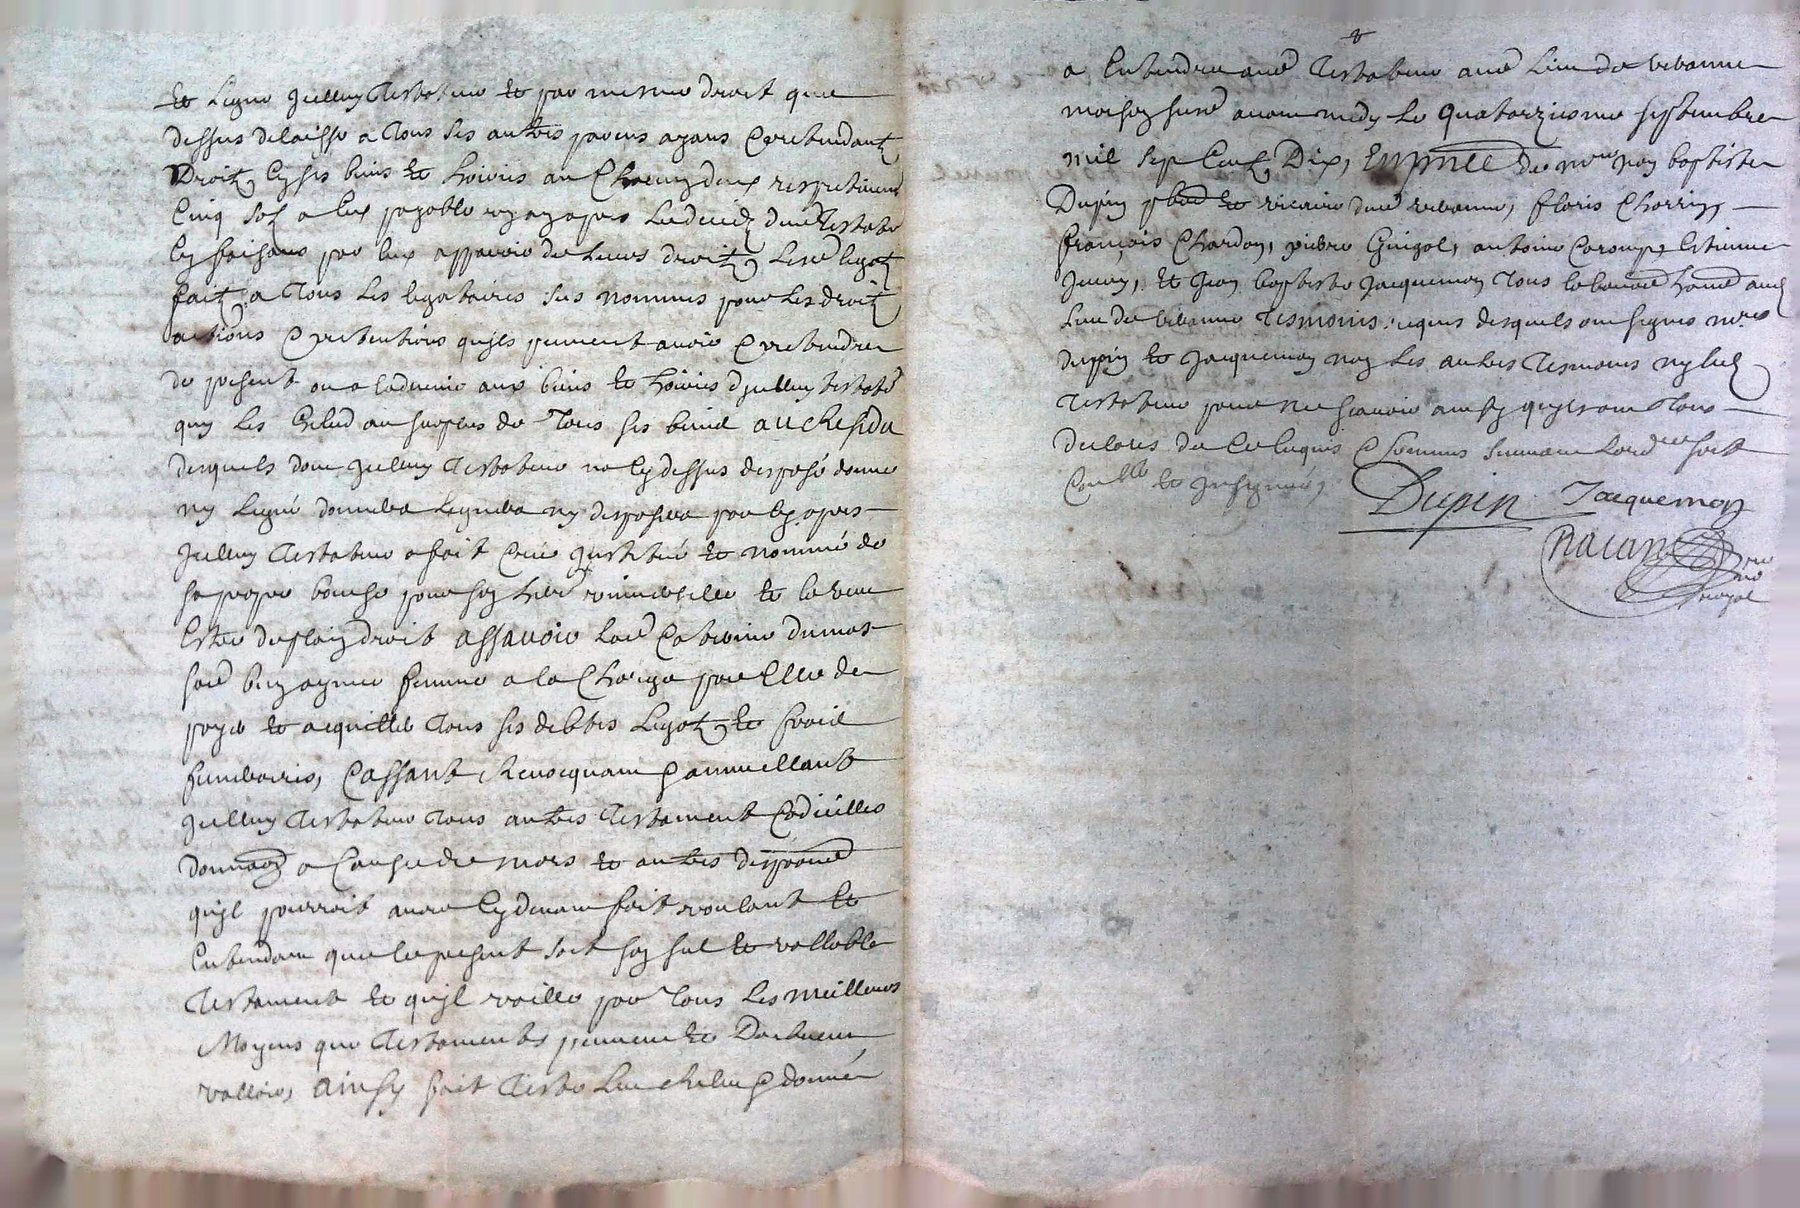 et legue Icelluy Testateur et par mesme droit que
dessus delaisse a Tous ses autres parens ayans & pretendants
Droitz en ses biens et hoiries au Chacung deux respectivement
Cinq solz a Eux payable ung an apres le deceds dud Testateur
En faisans par Eux apparoir de leurs droitz, Lesd legatz
faitz a Tous les legataires sus nommes pour les droitz
actions & pretentions quils peuvent avoir & pretendre
de present ou a ladvenir aux biens et hoiries dIcelluy testateur
quy les Exclud au surplus de Tous ses biens au Residu
desquels dont Icelluy Testateur na Cy dessus disposé donne
ny legué donnera leguera ny disposera par Cy apres
Icelluy Testateur a fait Creé Institué et nommé de
sa propre bouche pour son here universelle et la veut
Estre de plain droit assavoir lad Catherine dumas
sad bien aymee femme a la Charge par Elle de
payer et acquitter Tous ses debtes Legatz et frais
funeraires, Cassant Revocquant & annullant
Icelluy Testateur Tous autres Testament Codicilles
donnaon a Cause de mort et autres dispoon
quil pourroit avoir Cy devant fait voulant et
Entendant que le present soit son seul et vallable
Testament et quil vaille par Tous les meilleurs
Moyens que Testaments peuvent et Doibvent
valloir, ainsy fait Testé Leu Releu & donné
a Entendre aud Testateur aud Lieu de
maison avant midy le quatorziesme septembre
mil sept Cent Dix, En pnce de baptiste
Dupin pbre et vicaire dud floris Charrin,
françois Chardon, pierre Guigal, antoine Estienne
et Jean baptiste Jacquemon Tous aud
Lieu de Tesmoins, requis desquels ont signes
dupin et Jacquemon non les autres Tesmoins ny led
Testateur pour ne sçavoir ainsy quils ont Tous
declares de Ce Enquis & sommes suivant Lord soit
Conllé et Insignué,
Dupin Jacquemon
Ravan
royal